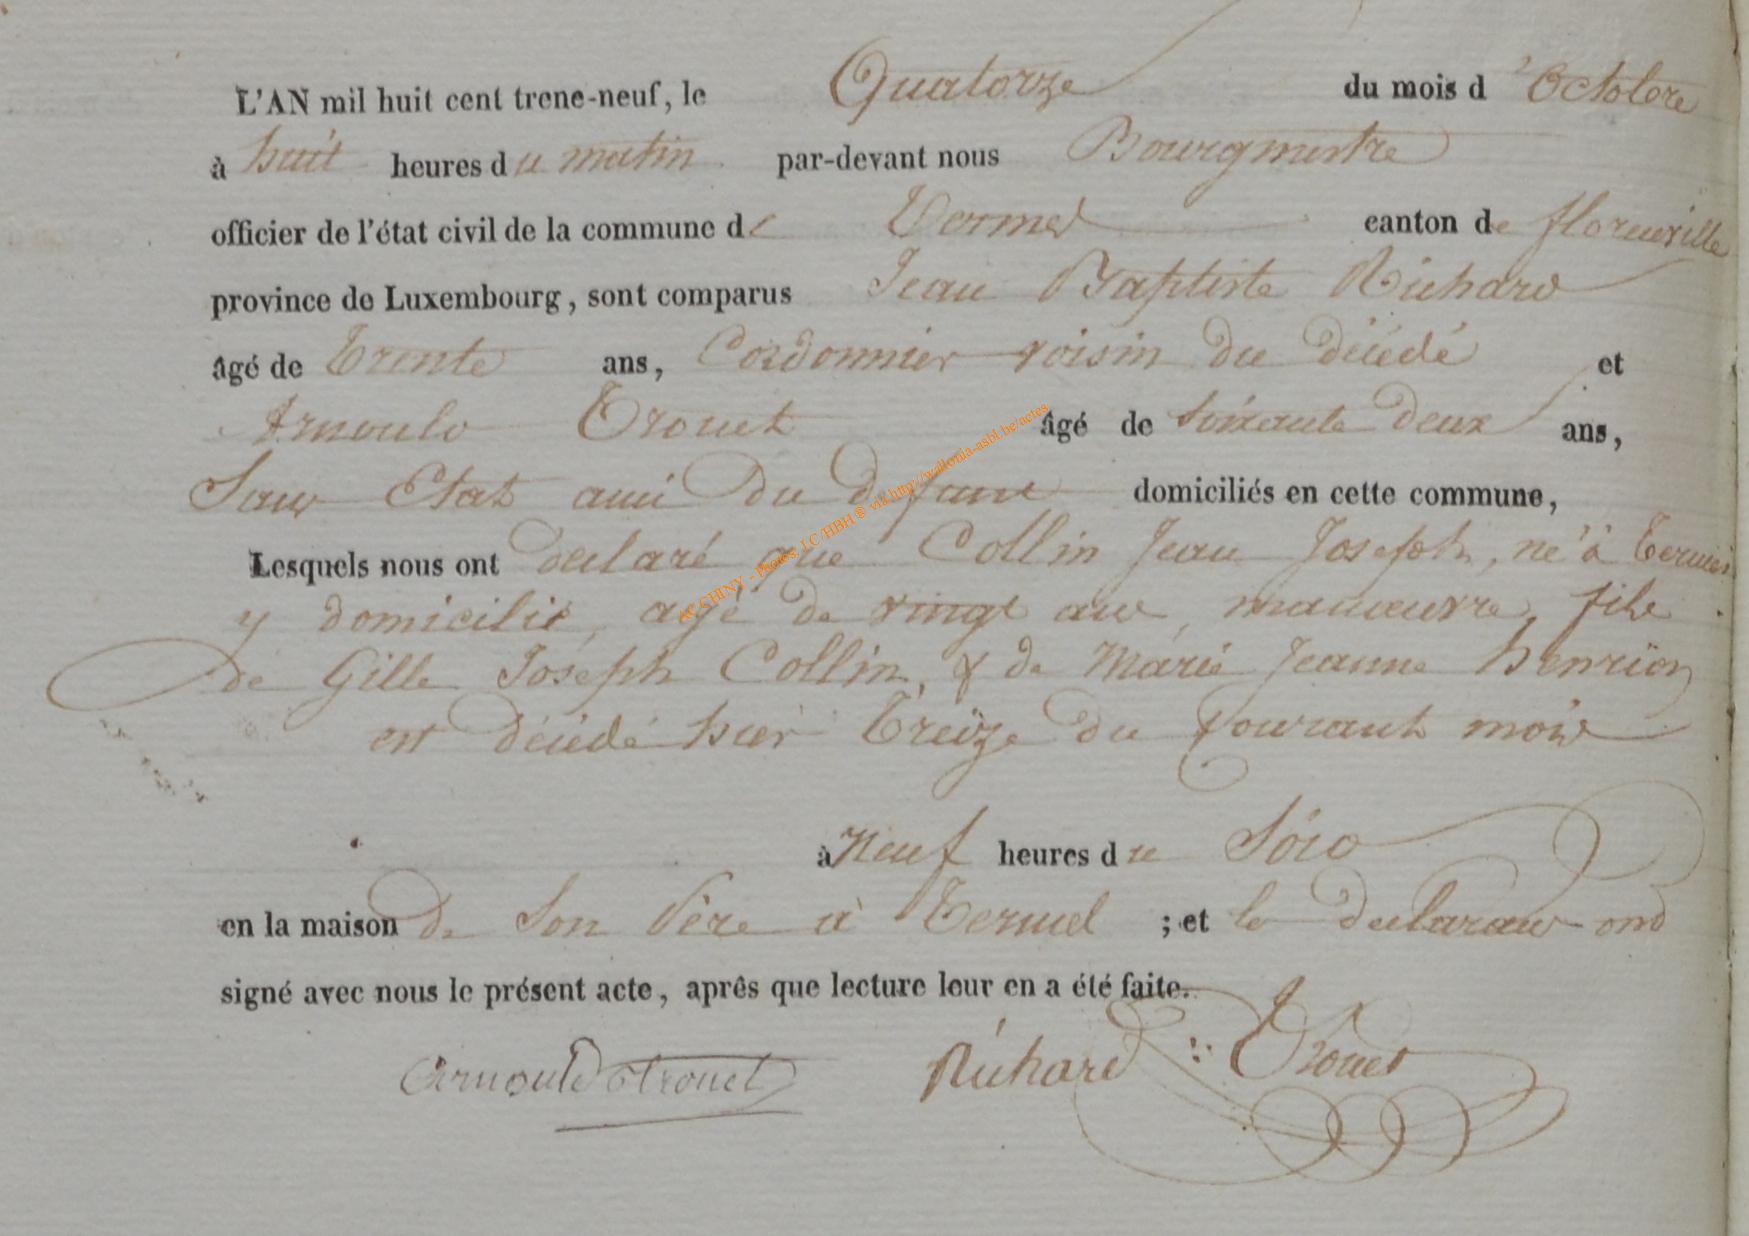 L'AN mil huit cent trene-neuf, le Quatorze du mois d'Octobre
à huit heures du matin par-devant nous Bourgmestre
officier de l'état civil de la commune de Termel canton de florenville
province de Luxembourg, sont comparus Jean Baptiste Richard
âgé de Trente ans, Cordonnier voisin du décédé et
Arnould Trouet âgé de soixante deux ans,
Sans Etat ami du défunt domiciliés en cette commune,
Lesquels nous ont déclaré que Collin Jean Joseph, né à Termel
y domicilié, agé de vingt ans, manœuvre, fils
de Gille Joseph Collin, & de Marie Jeanne henrion
est décédé hier Treize du courant mois
à Neuf heures du Soir
en la maison de Son Père à Termel ; et les déclarans ont
signé avec nous le présent acte, après que lecture leur en a été faite.
Arnould trouet Richard Trouet
ACCHINY - Photos, J.C/HBH ® via http://wallonia-asbl.be/actes